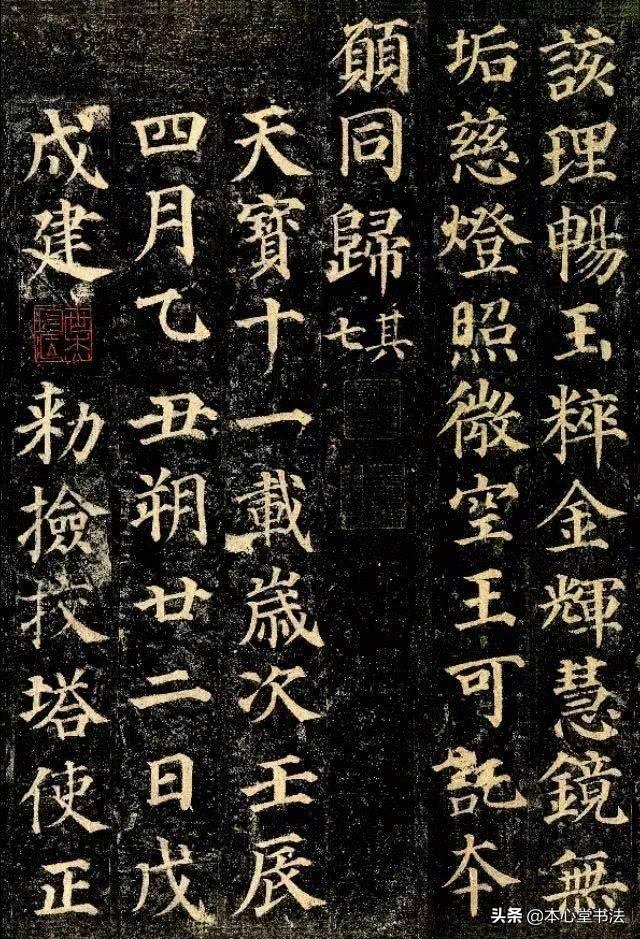 該理暢玉粹金輝慧鏡無
垢慈燈照微空王可託夲
願同歸其七
天寶十一載歲次壬辰
四月乙丑朔廿二日戊
戌建 勅撿挍塔使正
头条 @本心堂书法